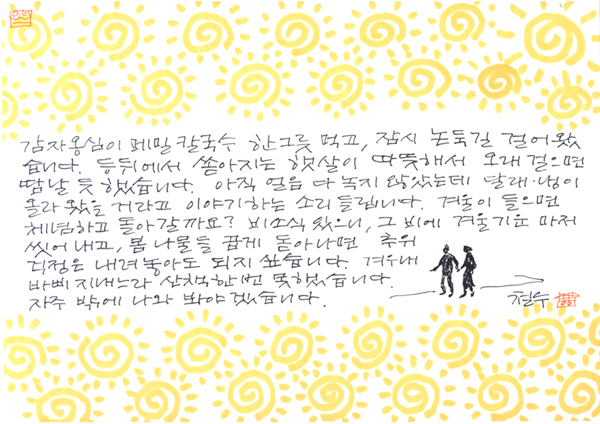 감자옹심이 메밀칼국수 한그릇 먹고, 잠시 논둑길 걸어왔
습니다. 등뒤에서 쏟아지는 햇살이 따뜻해서 오래 걸으면
땀날 듯 했습니다. 아직 얼음 다 녹지 않았는데 달래·냉이
올라 왔을 거라고 이야기하는 소리 들립니다. 겨울이 들으면
체념하고 돌아갈까요? 비소식 있으니, 그 비에 겨울기운 마저
씻어 내고, 봄 나물들 곱게 돋아나면 추위
걱정은 내려놓아도 되지 싶습니다. 겨우내
바삐 지내느라 산책 한번 못했습니다.
자주 밖에 나와 봐야 겠습니다.
철수